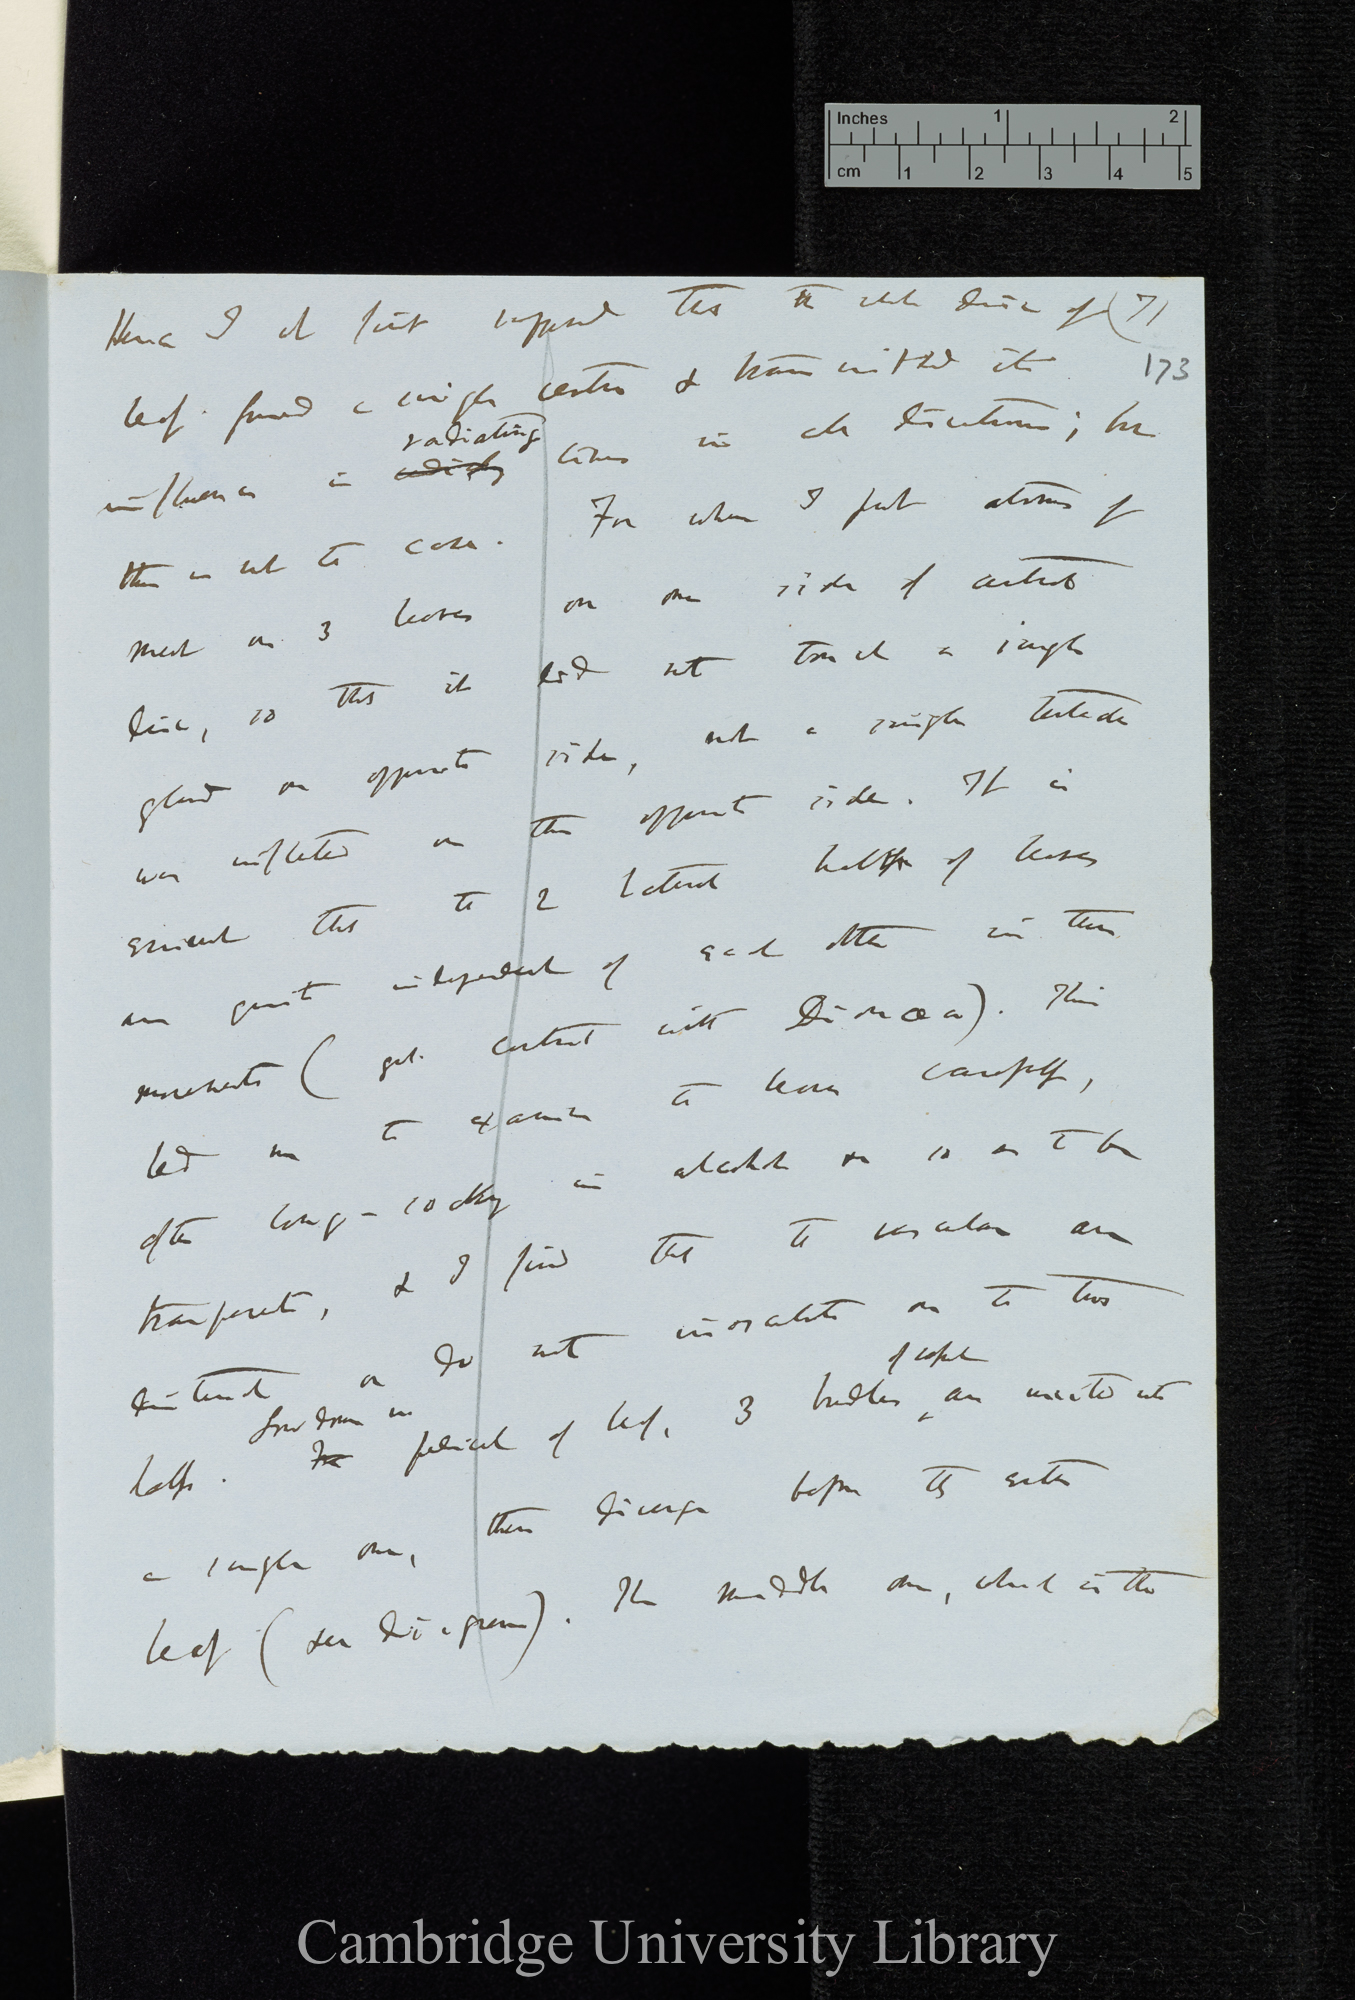 Inches 1 2
cm 1 2 3 4 5
Hence I at first supposed that the whole disc of (71
173
leaf formed a single centre & transmitted its
radiating
influence in lines in all directions; but
this is not the case. For when I put atoms of
meat on 3 leaves on one side of central
disc, so that it did not touch a single
gland on opposite side, not a single tentacle
was inflected on the opposite side. It is
evident that the 2 lateral halves of leaves
are quite independent of each other in their
movements ( contrast with Dionæa). This
led me to examine the leaves carefully,
after long-soaking in alcohol so as to be
transparent, & I find that the vascular are
distinct or do not inosculate on the two
of vessels
halfs. Low down in pedicel of leaf, 3 bundles are united into
a single one, these diverge before they enter
leaf (see diagram). The middle one, which is the
Cambridge University Library